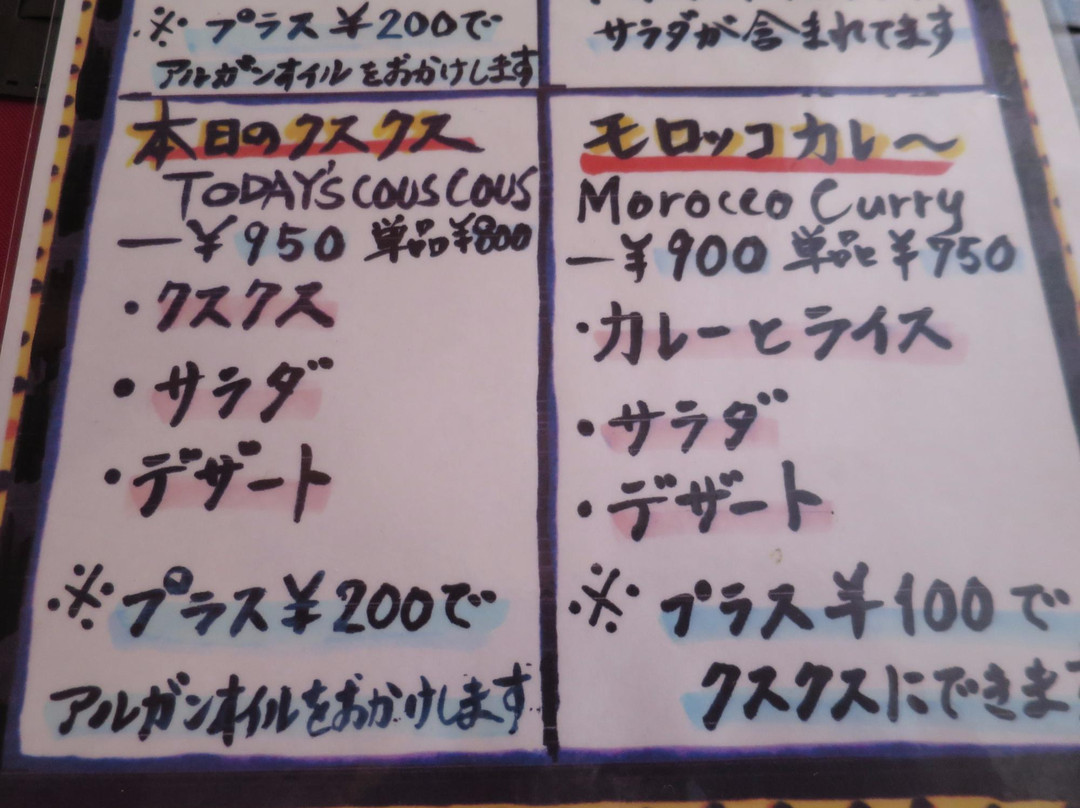 ※プラス¥200で
アルガンオイルをおかけします
サラダが含まれてます
本日のクスクス
TODAY'S COUSCOUS
ー¥950 単品¥800
・クスクス
・サラダ
・デザート
※プラス¥200で
アルガンオイルをおかけします
モロッコカレ〜
Morocco Curry
ー¥900 単品¥750
・カレーとライス
・サラダ
・デザート
※プラス¥100で
クスクスにできます